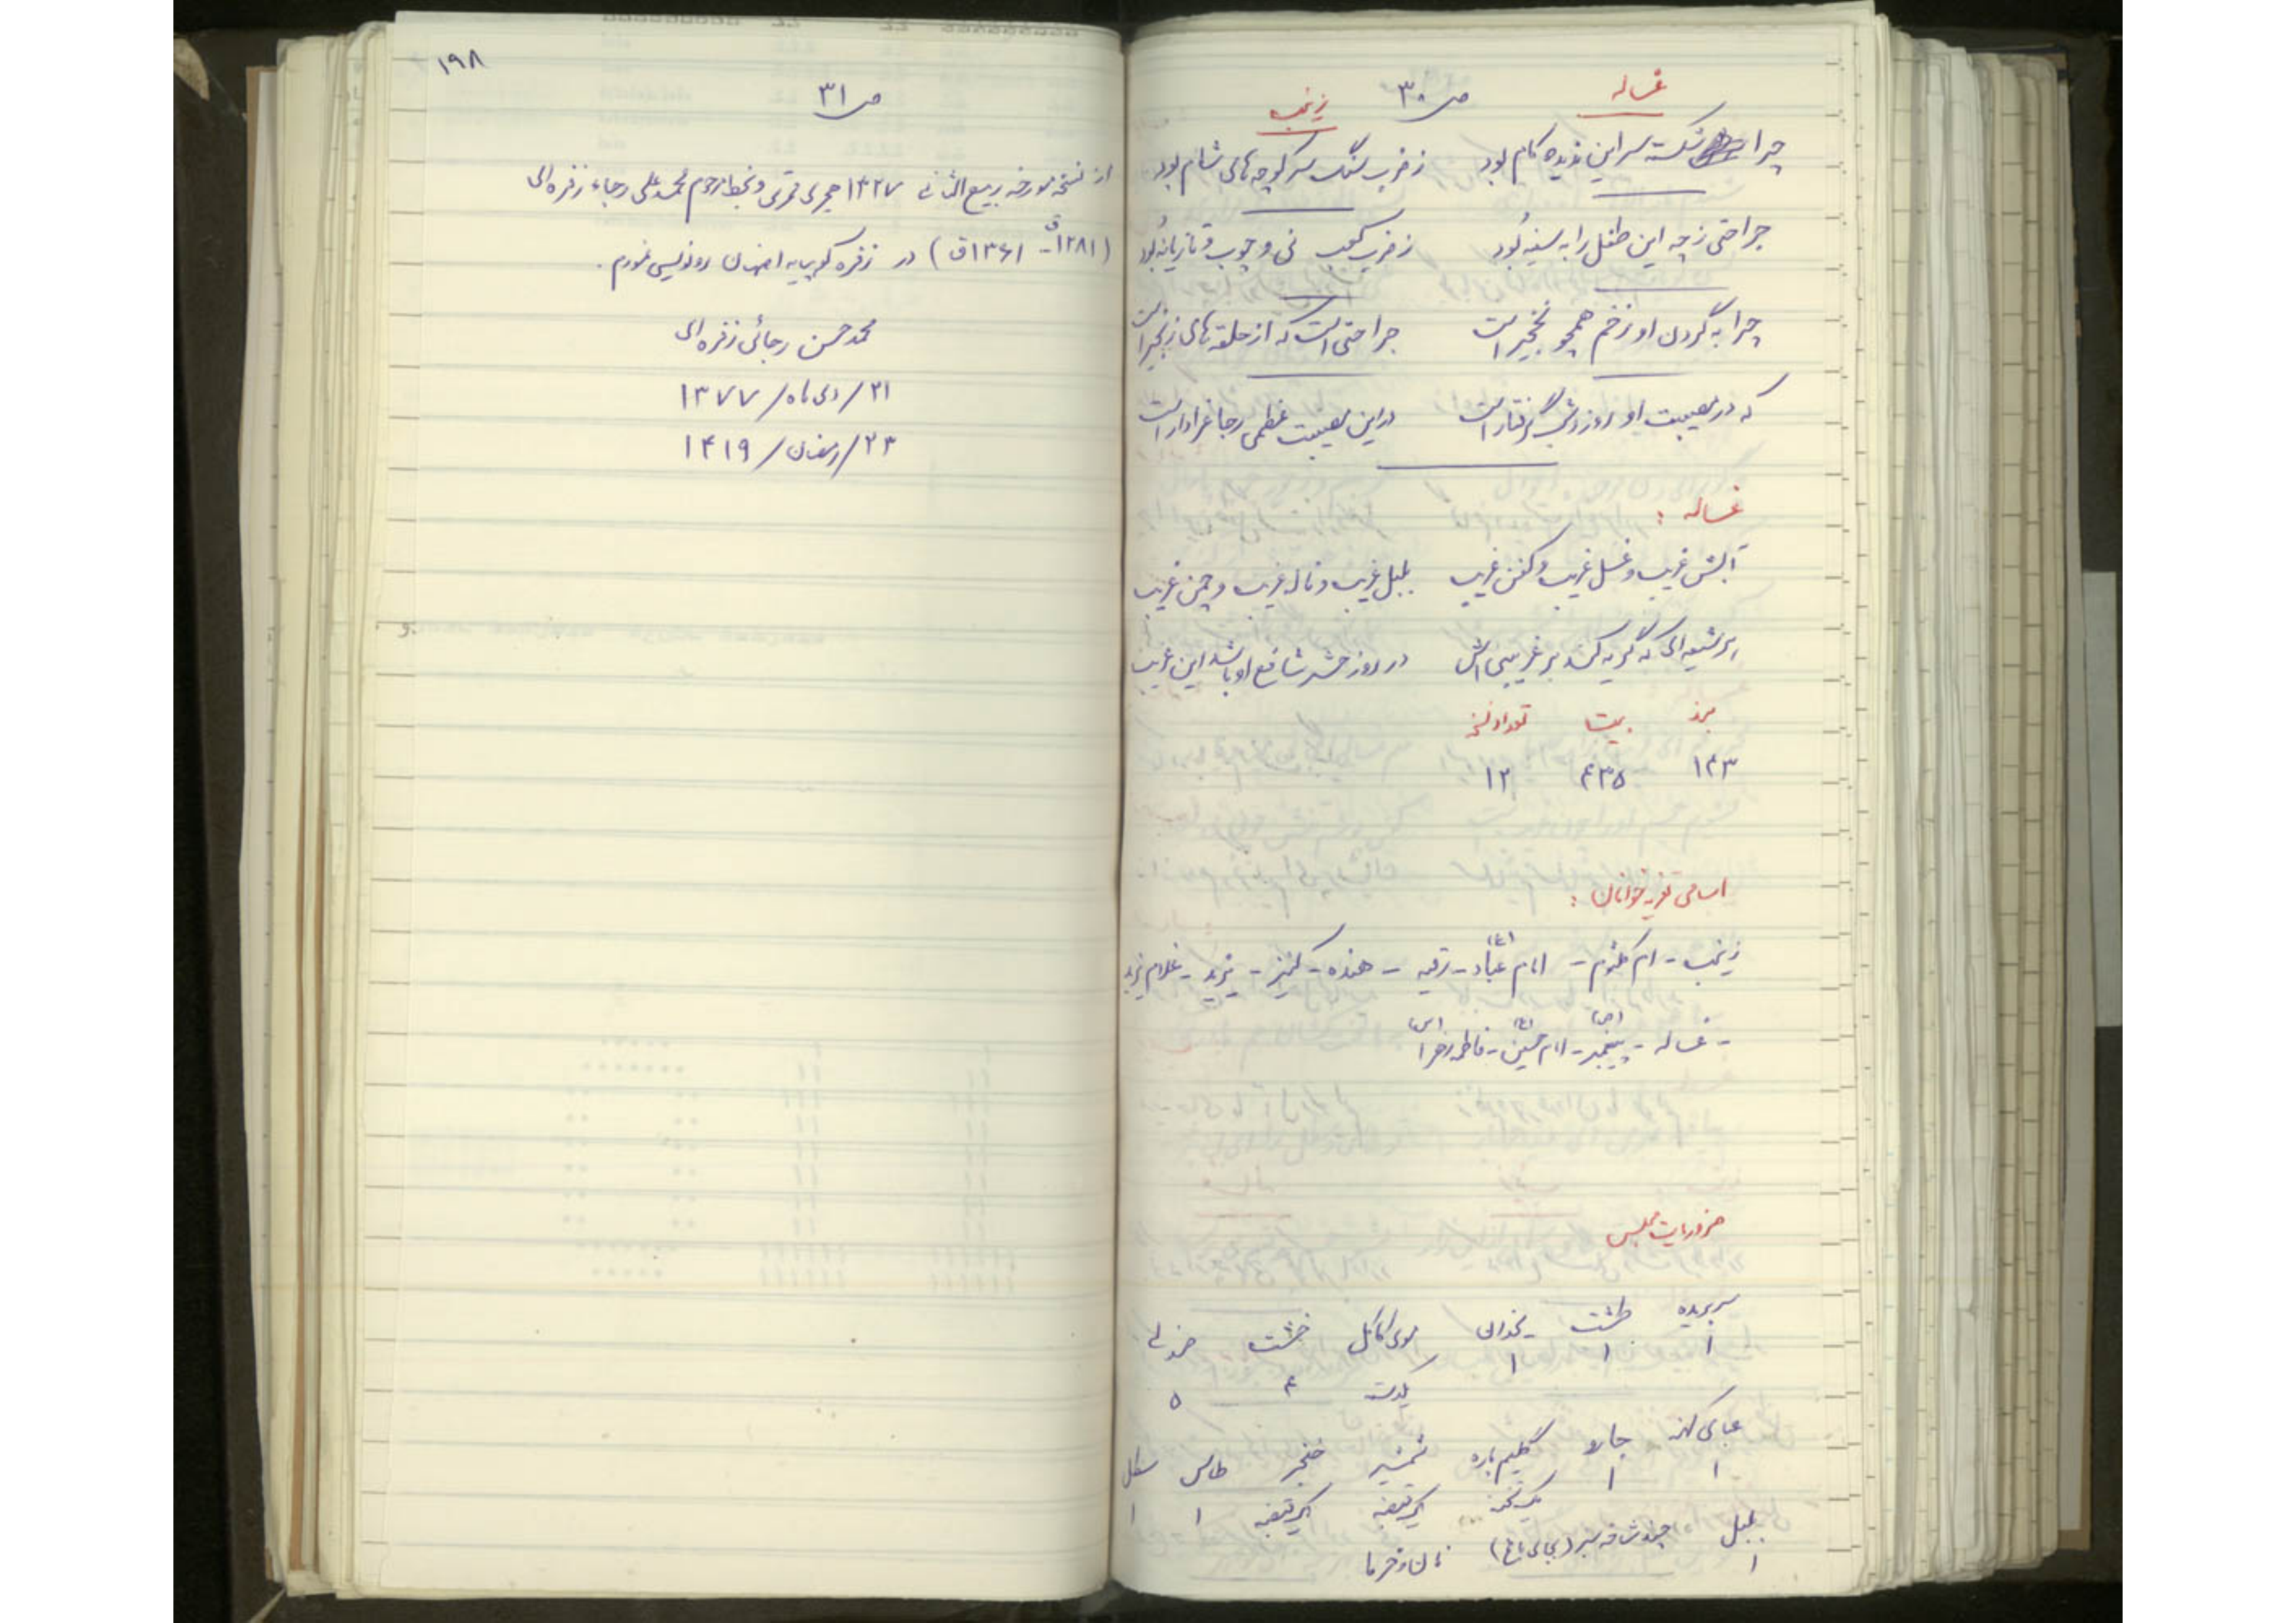 غساله
ص ۳۰
زینب
چرا شکسته سر این ندیده کام بود
ز ضرب سنگ سر کوچه های شام بود
جراحتی ز چه این طفل را به سینه بُود
ز ضرب کعب نی و چوب و تازیانه بُود
چرا به گردن او زخم همچو نخجیر است
جراحتی است که از حلقه های زنجیر است
که در مصیبت او روز و شب گرفتار است
در این مصیبت عظمی رجا عزادار است
غساله :
آبش غریب و غسل غریب و کفن غریب
بلبل غریب و ناله غریب و چمن غریب
هر شیعه ای که گریه کند بر غریبی اش
در روز حشر شافع او باشد این غریب
بیت تعداد نسخه
۱۴۳ ۴۳۵ ۱۲
اسامی تعزیه خوانان :
زینب - ام کلثوم - امام عبّاد (ع) - رقیه - هنده - کنیز - یزید - غلام یزید
- غساله - پیغمبر (ص) - امام حسین (ع) - فاطمه زهرا (س)
ضروریات مجلس
سر بریده طشت خشت صندلی
۱ ۱ ۱ ۴ ۵
عبای کهنه جارو گلیم پاره شمشیر خنجر طاس سطل
۱ ۱ یک تخته یک قبضه یک قبضه ۱ ۱
بلبل چند شاخه سبز (بجای باغ) نان و خرما
۱
۱۹۸
ص ۳۱
از نسخه مورخه ربیع الثانی ۱۳۲۷ هجری قمری و بخط مرحوم محمدعلی رجاء زفره ای
(۱۲۸۱ق - ۱۳۶۱ق) در زفره کوهپایه اصفهان رونویسی نمودم.
محمدحسن رجائی زفره ای
۲۱/دی ماه/۱۳۷۷
۲۳/رمضان/۱۴۱۹